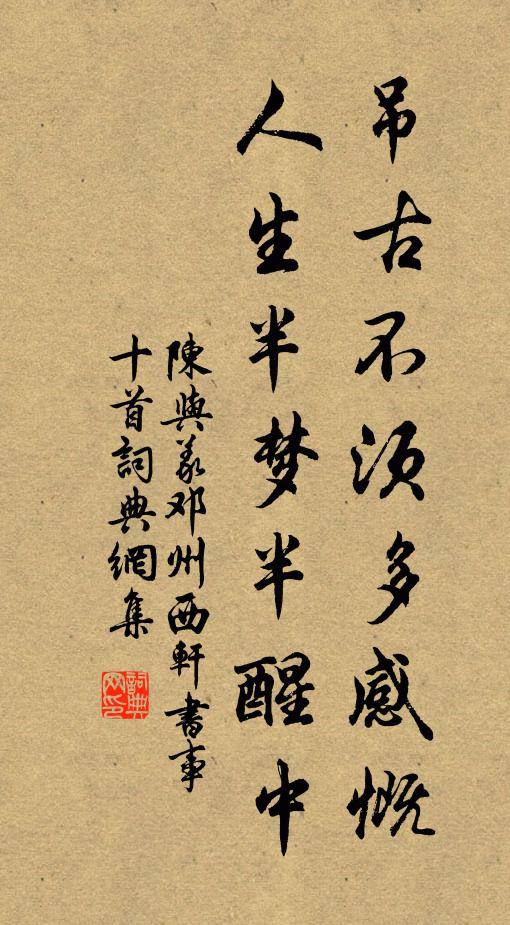 吊古不须多感慨
人生半梦半醒中
陳與義邓州西軒書事
十首詞典網集
詞典網印